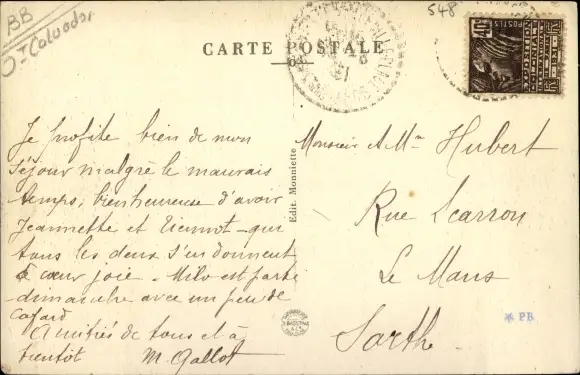 BB
Calvados
548
CARTE POSTALE
Je profite bien de mon
séjour malgré le mauvais
temps, bien heureuse d'avoir
Jeannette et Pierrot - qui
tous les deux s'en donnent
à cœur joie. Milo est parti
dimanche avec un peu de
cafard
Amitiés de tous et à
bientôt M. Gallot
Edit. Monniette
Monsieur & Mme Hubert
Rue Scarron
Le Mans
Sarthe
* PB
40c
POSTES